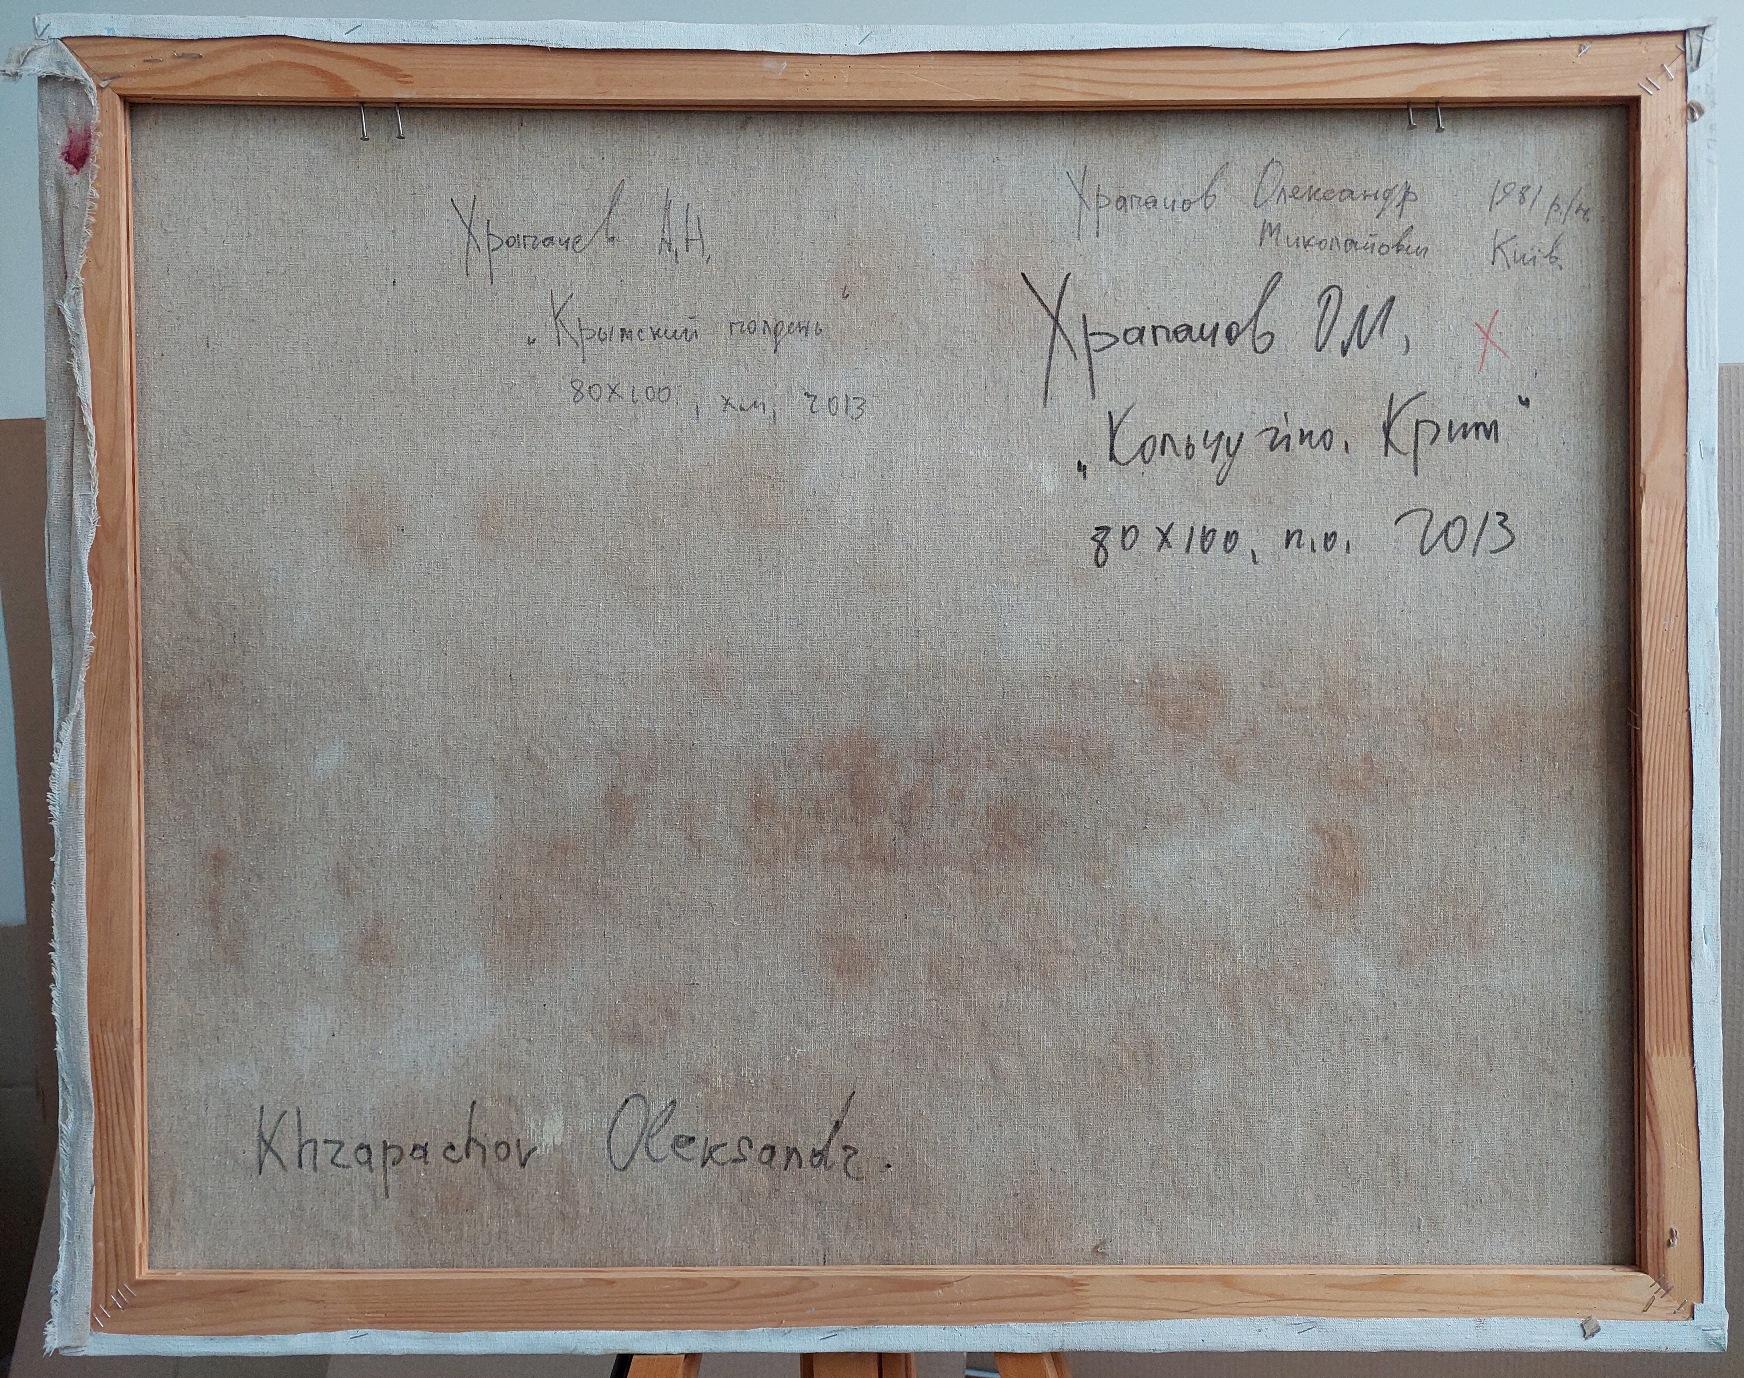 Храпачев А.Н.
„Крымский полдень“
80х100, х.м, 2013
Храпачов Олександр 1981 р.н.
Миколайович Київ.
Храпачов О.М. х
„Кольчугіно. Крим“
80х100, п.о. 2013
Khrapachov Oleksandr.